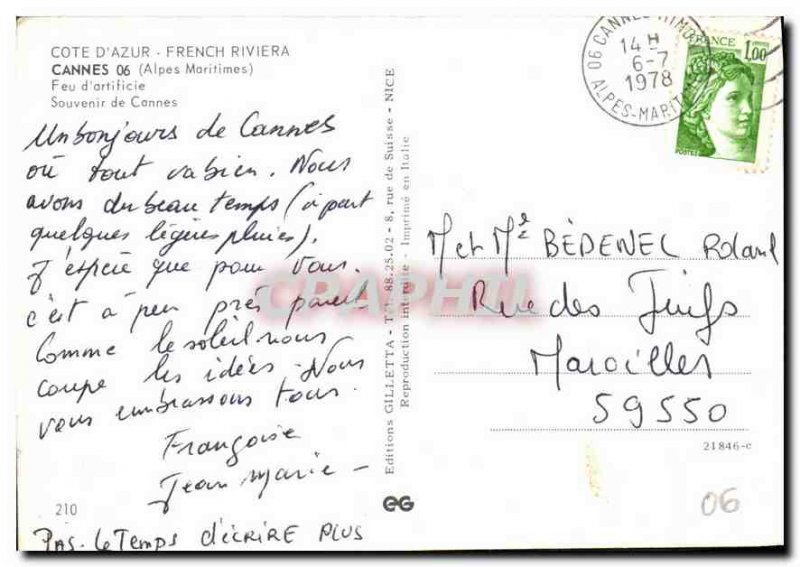 COTE D'AZUR - FRENCH RIVIERA
CANNES 06 (Alpes Maritimes)
Feu d'artificie
Souvenir de Cannes
Un bonjours de Cannes
où tout va bien. Nous
avons du beau temps (à part
quelques légères pluies).
J'espère que pour vous.
c'est à peu près pareil
Comme le soleil nous
coupe les idées. Nous
vous embrassons tous.
Françoise
Jean Marie -
210
PAS - Le Temps d'écrire PLUS
Editions GILLETTA - Tél. 88.25.02 - 8, rue de Suisse - NICE
Reproduction interdite - Imprimé en Italie
EG
CPAPHIL
06 CANNES
14 H
6-7
1978
ALPES-MARITIMES
FRANCE 1,00
POSTES
M et Mme BÉDENEL Roland
Rue des Juifs
Maroilles
59550
21846-c
06